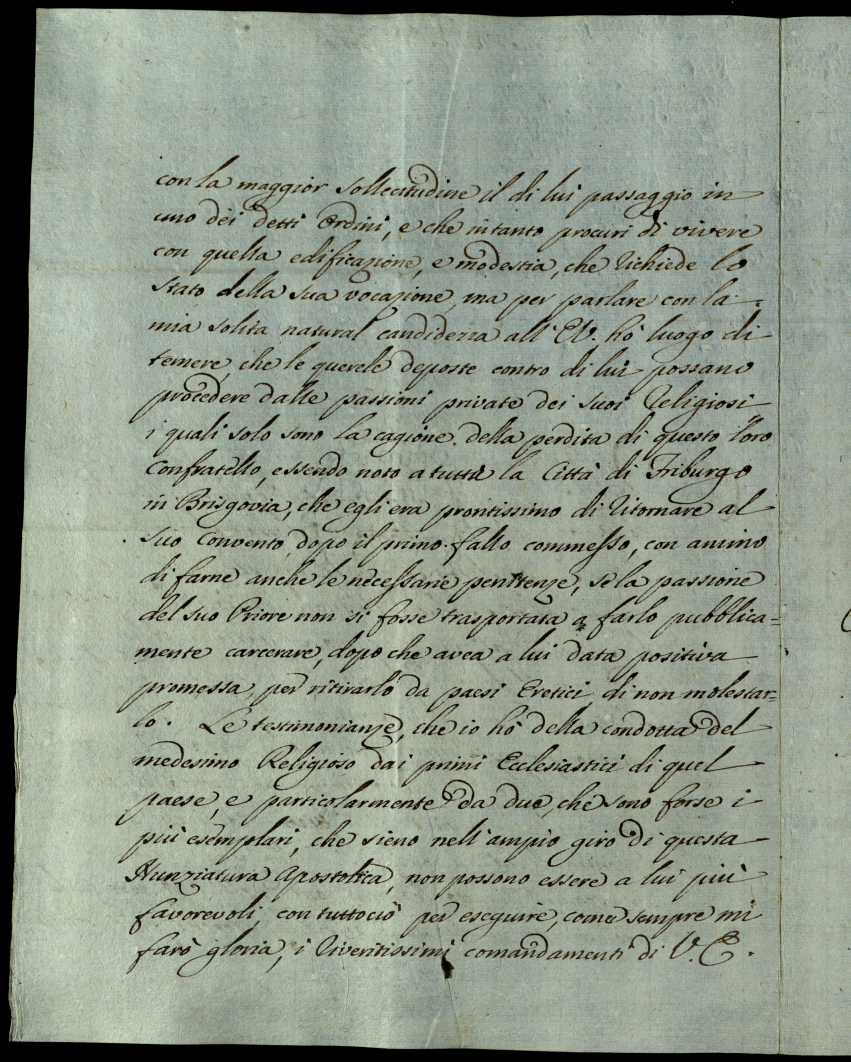 con la maggior sollecitudine il di lui passaggio in
uno dei detti Ordini, e che intanto procuri di vivere
con quella edificazione, e modestia, che richiede lo
Stato della sua vocazione, ma per parlare con la
mia solita natural candidezza all'EV. hò luogo di
temere, che le querele deposte contro di lui possano
procedere dalle passioni private dei suoi Religiosi
i quali solo sono la cagione della perdita di questo loro
Confratello, essendo noto a tutta la Città di Friburgo
in Brisgovia, che egli era prontissimo di ritornare al
suo Convento dopo il primo fallo commesso, con animo
di farne anche le necessarie penitenze, se la passione
del suo Priore non si fosse trasportata a farlo pubblica=
mente carcerare, dopo che avea a lui data positiva
promessa, per ritirarlo da paesi Eretici, di non molestar=
lo. Le testimonianze, che io hò della condotta del
medesimo Religioso dai primi Ecclesiastici di quel
paese, e particolarmente da due, che sono forse i
più esemplari, che sieno nell'ampio giro di questa
Nunziatura Apostolica, non possono essere a lui più
favorevoli, con tuttociò per eseguire, come sempre mi
farò gloria, i riveritissimi comandamenti di V. E.